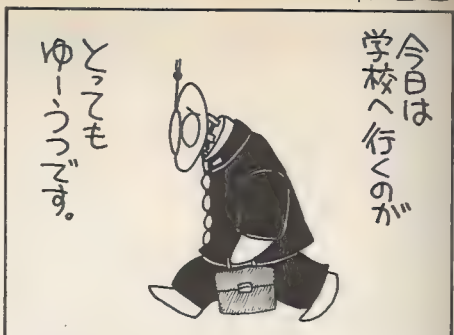 今日は
学校へ行くのが
とっても
ゆーうつです。